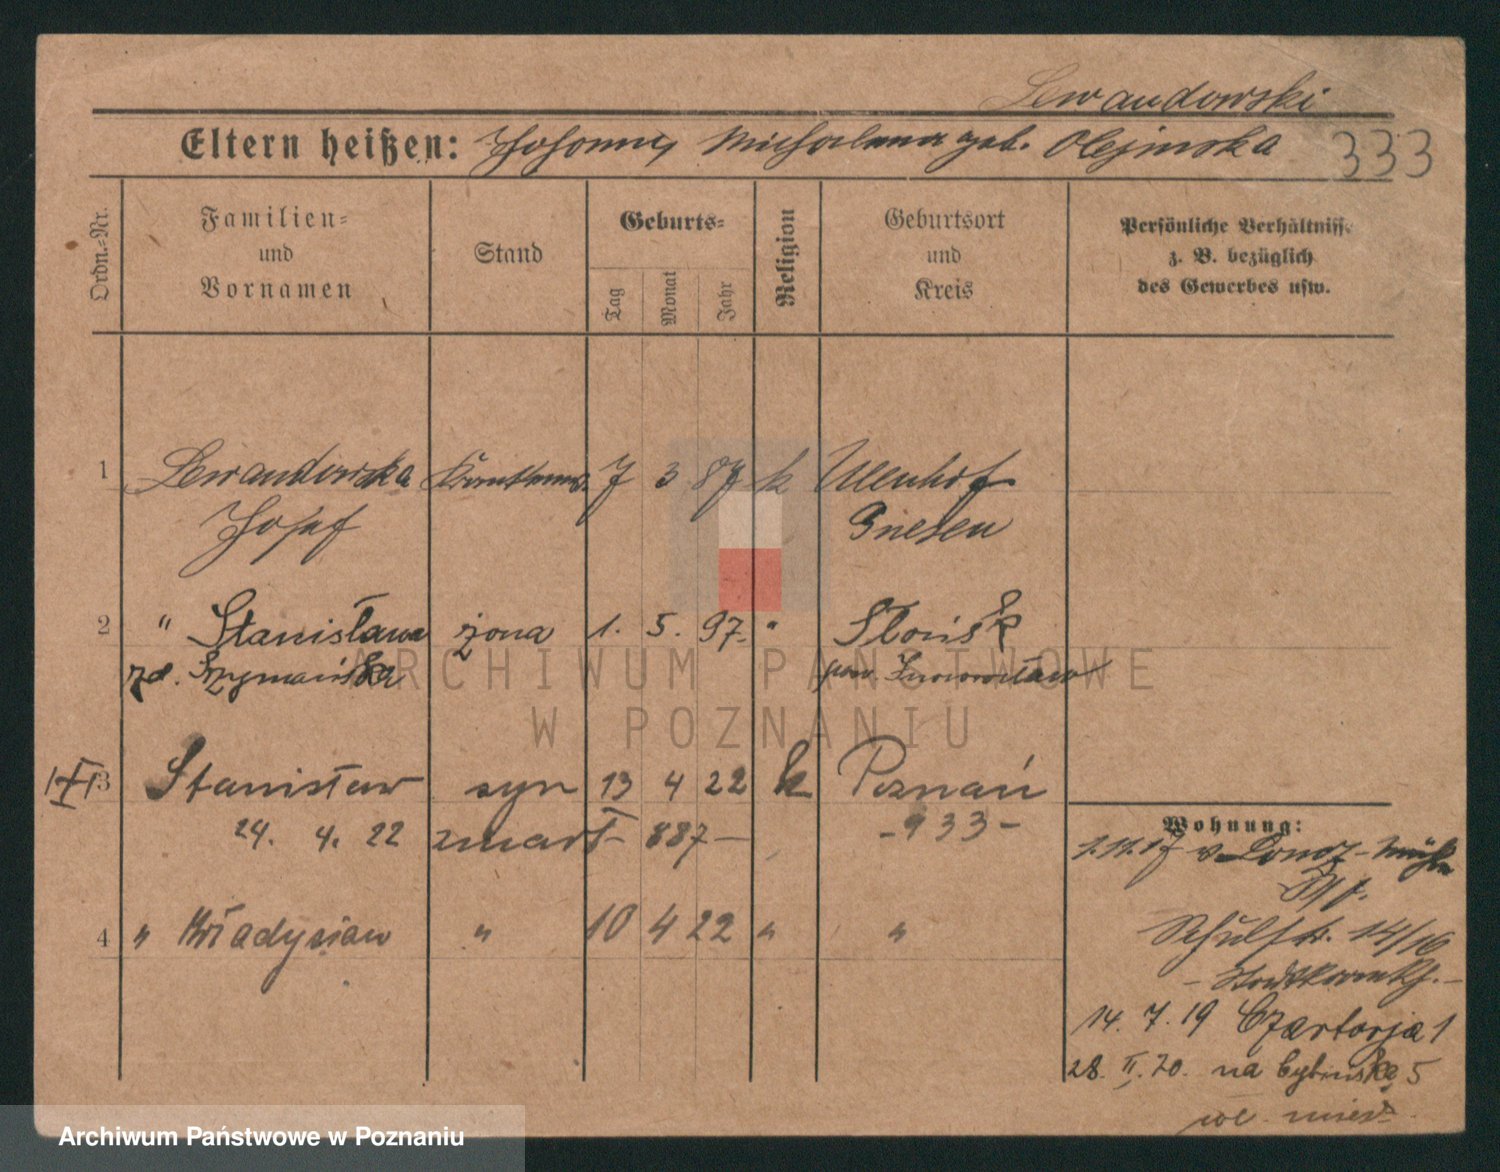 Lewandowski
Eltern heißen: Johann, Michalina geb. Olejinska
333
Ordn.-Nr.
Familien- und Vornamen
Stand
Geburts-
Tag
Monat
Jahr
Religion
Geburtsort und Kreis
Persönliche Verhältnisse z. B. bezüglich des Gewerbes usw.
1 Lewandowska 7 3 87 k Ulenhof
Josef Gnesen
2 " Stanisława żona 1. 5. 97. " Słońsk
zd. Szymańska pow. Inowrocław
ARCHIWUM PAŃSTWOWE
W POZNANIU
3 Stanisław syn 13 4 22 k Poznań
24. 4. 22 zmarł 887 - - 933 -
4 " Władysław " 10 4 22 " "
Wohnung:
1.11.17 v.
Schulstr. 14/16
14. 7. 19 Czartorja 1
28. II. 20. na Cybińska 5
Archiwum Państwowe w Poznaniu